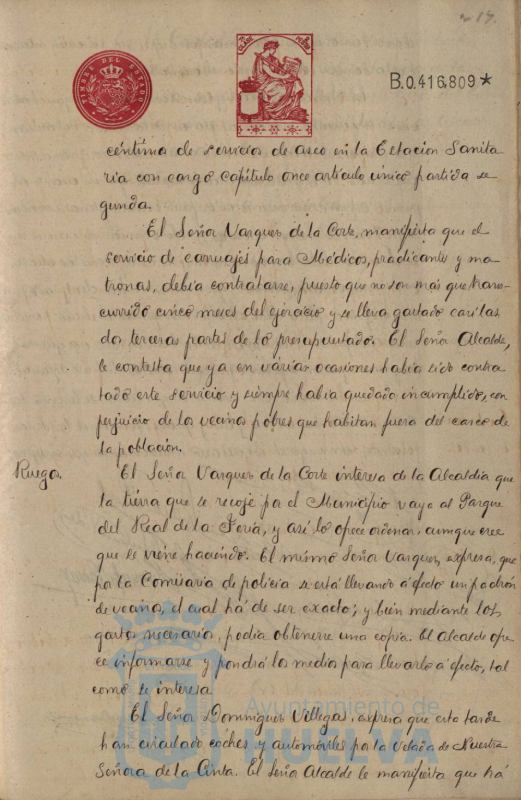 nº 17.
TIMBRE DEL ESTADO
7ª CLASE
1 PESETA
B.0.416,809 *
céntimos de servicios de aseo en la Estacion Sanita
ria con cargo capítulo once artículo único partida se
gunda.
El Señor Vazquez de la Corte, manifiesta que el
servicio de carruajes para Médicos, practicantes y ma
tronas, debia contratarse, puesto que no son más que trans-
currido cinco meses del ejercicio y se lleva gastado casi las
dos terceras partes de lo presupuestado. El Señor Alcalde,
le contesta que ya en várias ocasiones había sido contra
tado este servicio y siempre había quedado incumplido, con
perjuicio de los vecinos pobres que habitan fuera del casco de
la población.
Ruegos.
El Señor Vazquez de la Corte interesa de la Alcaldía que
la tierra que se recoje por el Municipio vaya al Parque
del Real de la Feria, y así lo ofrece ordenar, aunque cree
que se viene haciendo. El mismo Señor Vazquez, expresa, que
por la Comisaria de policia se está llevando á efecto un padrón
de vecinos, el cual há de ser exacto; y bien mediante los
gastos necesarios, podia obtenerse una copia. El Alcalde ofre
ce informarse y pondrá los medios para llevarlo á efecto, tal
como se interesa.
El Señor Dominguez Villegas, expresa que esta tarde
han circulado coches y automóviles por la Velada de Nuestra
Señora de la Cinta. El Señor Alcalde le manifiesta que há
Ayuntamiento de
HUELVA